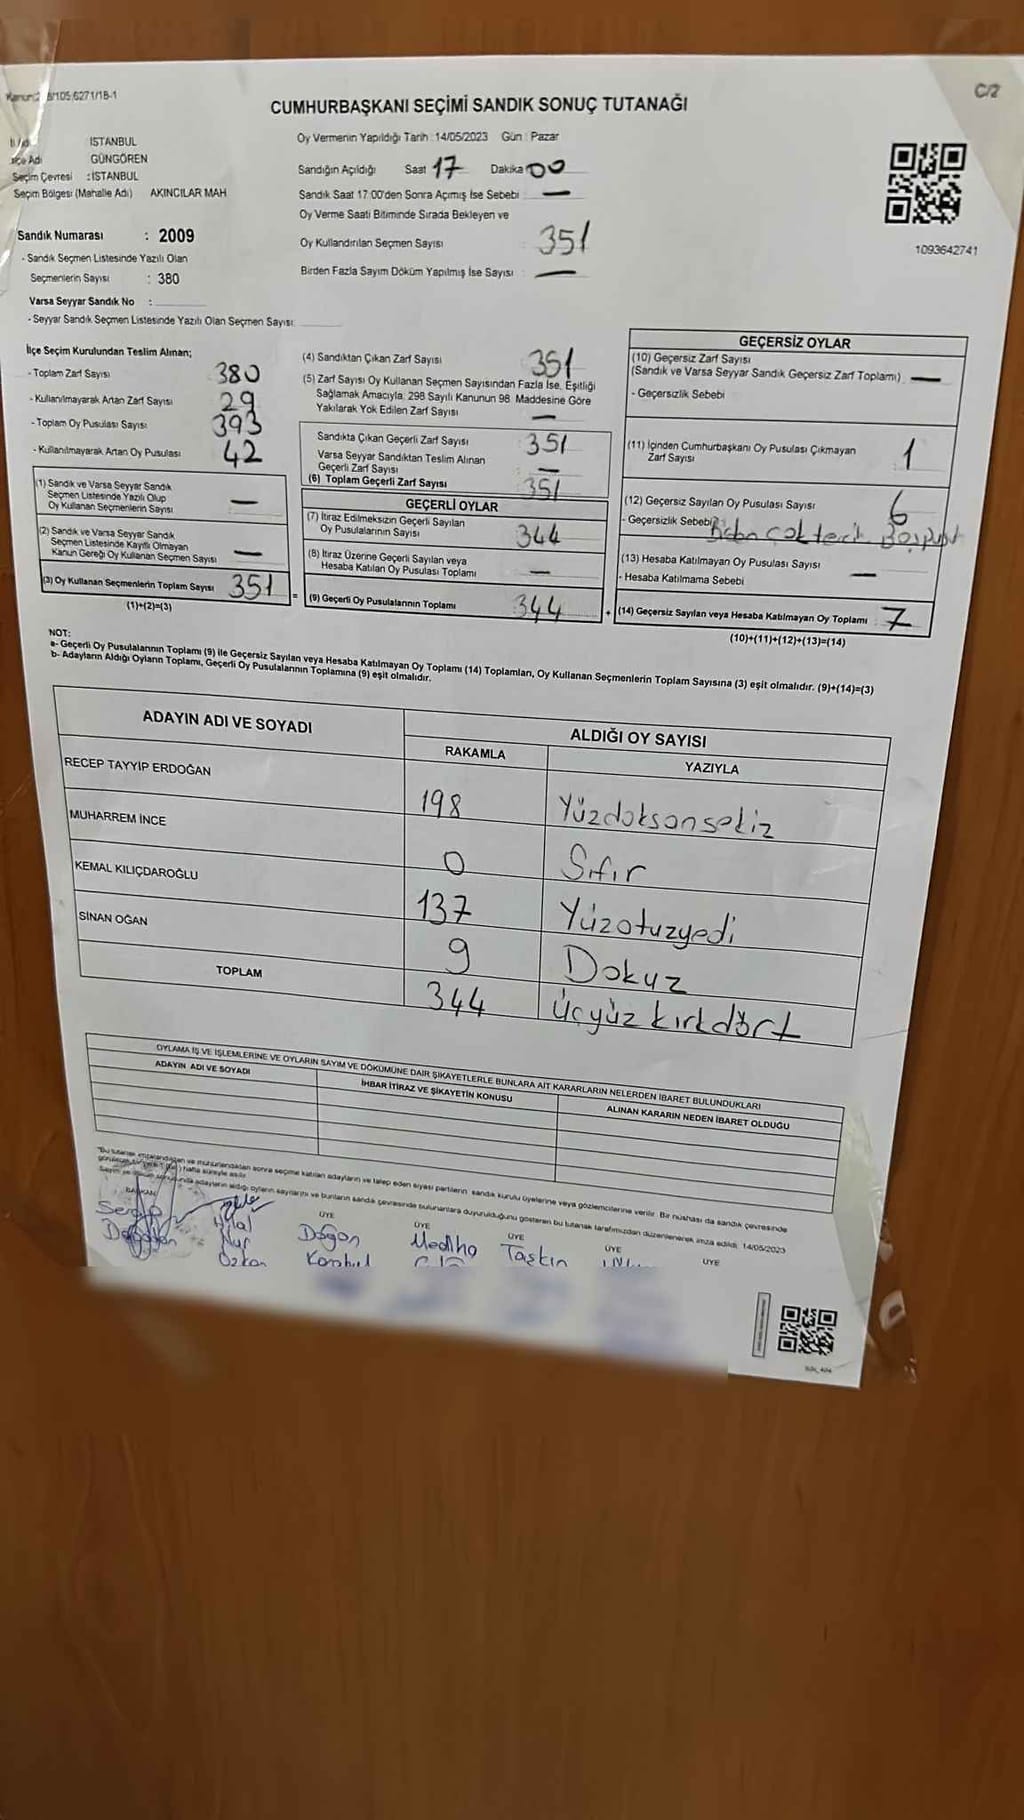 /105/6271/1B-1
C/2
CUMHURBAŞKANI SEÇİMİ SANDIK SONUÇ TUTANAĞI
İl Adı İSTANBUL
İlçe Adı GÜNGÖREN
Seçim Çevresi : İSTANBUL
Seçim Bölgesi (Mahalle Adı) AKINCILAR MAH
Sandık Numarası : 2009
- Sandık Seçmen Listesinde Yazılı Olan
Seçmenlerin Sayısı : 380
Varsa Seyyar Sandık No :
- Seyyar Sandık Seçmen Listesinde Yazılı Olan Seçmen Sayısı:
Oy Vermenin Yapıldığı Tarih : 14/05/2023 Gün : Pazar
Sandığın Açıldığı Saat 17 Dakika 00
Sandık Saat 17:00'den Sonra Açımış İse Sebebi —
Oy Verme Saati Bitiminde Sırada Bekleyen ve
Oy Kullandırılan Seçmen Sayısı : 351
Birden Fazla Sayım Döküm Yapılmış İse Sayısı : —
1093642741
İlçe Seçim Kurulundan Teslim Alınan;
- Toplam Zarf Sayısı 380
- Kullanılmayarak Artan Zarf Sayısı 29
- Toplam Oy Pusulası Sayısı 393
- Kullanılmayarak Artan Oy Pusulası 42
(1) Sandık ve Varsa Seyyar Sandık
Seçmen Listesinde Yazılı Olup
Oy Kullanan Seçmenlerin Sayısı —
(2) Sandık ve Varsa Seyyar Sandık
Seçmen Listesinde Kayıtlı Olmayan
Kanun Gereği Oy Kullanan Seçmen Sayısı —
(3) Oy Kullanan Seçmenlerin Toplam Sayısı 351
(1)+(2)=(3)
(4) Sandıktan Çıkan Zarf Sayısı 351
(5) Zarf Sayısı Oy Kullanan Seçmen Sayısından Fazla İse, Eşitliği
Sağlamak Amacıyla, 298 Sayılı Kanunun 98. Maddesine Göre
Yakılarak Yok Edilen Zarf Sayısı —
Sandıkta Çıkan Geçerli Zarf Sayısı 351
Varsa Seyyar Sandıktan Teslim Alınan
Geçerli Zarf Sayısı —
(6) Toplam Geçerli Zarf Sayısı 351
GEÇERLİ OYLAR
(7) İtiraz Edilmeksizin Geçerli Sayılan
Oy Pusulalarının Sayısı 344
(8) İtiraz Üzerine Geçerli Sayılan veya
Hesaba Katılan Oy Pusulası Toplamı —
= (9) Geçerli Oy Pusulalarının Toplamı 344
GEÇERSİZ OYLAR
(10) Geçersiz Zarf Sayısı
(Sandık ve Varsa Seyyar Sandık Geçersiz Zarf Toplamı) —
- Geçersizlik Sebebi
(11) İçinden Cumhurbaşkanı Oy Pusulası Çıkmayan
Zarf Sayısı 1
(12) Geçersiz Sayılan Oy Pusulası Sayısı 6
- Geçersizlik Sebebi
(13) Hesaba Katılmayan Oy Pusulası Sayısı —
- Hesaba Katılmama Sebebi
+ (14) Geçersiz Sayılan veya Hesaba Katılmayan Oy Toplamı 7
(10)+(11)+(12)+(13)=(14)
NOT:
a- Geçerli Oy Pusulalarının Toplamı (9) ile Geçersiz Sayılan veya Hesaba Katılmayan Oy Toplamı (14) Toplamları, Oy Kullanan Seçmenlerin Toplam Sayısına (3) eşit olmalıdır. (9)+(14)=(3)
b- Adayların Aldığı Oyların Toplamı, Geçerli Oy Pusulalarının Toplamına (9) eşit olmalıdır.
ADAYIN ADI VE SOYADI
ALDIĞI OY SAYISI
RAKAMLA YAZIYLA
RECEP TAYYİP ERDOĞAN 198 Yüzdoksansekiz
MUHARREM İNCE 0 Sıfır
KEMAL KILIÇDAROĞLU 137 Yüzotuzyedi
SİNAN OĞAN 9 Dokuz
TOPLAM 344 Üçyüz kırkdört
OYLAMA İŞ VE İŞLEMLERİNE VE OYLARIN SAYIM VE DÖKÜMÜNE DAİR ŞİKAYETLERLE BUNLARA AİT KARARLARIN NELERDEN İBARET BULUNDUKLARI
ADAYIN ADI VE SOYADI İHBAR İTİRAZ VE ŞİKAYETİN KONUSU ALINAN KARARIN NEDEN İBARET OLDUĞU
"Bu tutanak imzalandıktan ve mühürlendikten sonra seçime katılan adayların ve talep eden siyasi partilerin sandık kurulu üyelerine veya gözlemcilerine verilir. Bir nüshası da sandık çevresinde
hafta süreyle asılır.
adayların aldığı oyların sayılarını ve bunların sandık çevresinde bulunanlara duyurulduğunu gösteren bu tutanak tarafımızdan düzenlenerek imza edildi. 14/05/2023
BAŞKAN ÜYE ÜYE ÜYE ÜYE ÜYE
Hilal Doğan Mediha Taşkın
Nur
Özkan